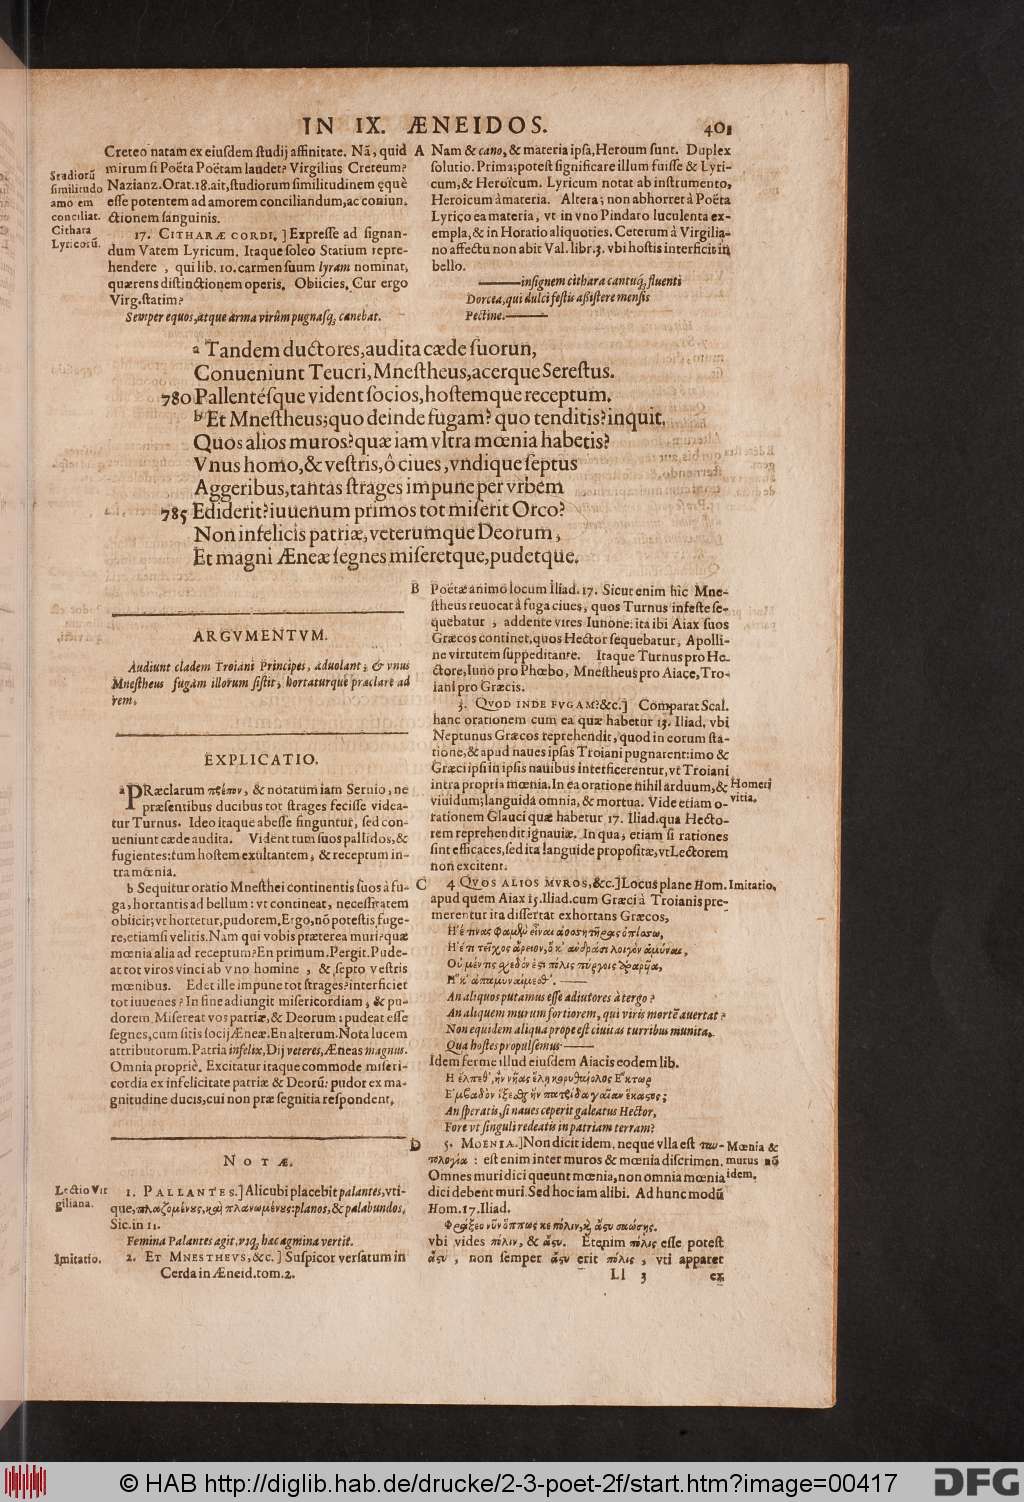 IN IX. ÆNEIDOS. 401
Creteo natam ex eiusdem studij affinitate. Nā, quid
mirum si Poëta Poëtam laudet? Virgilius Creteum?
Nazianz. Orat. 18. ait, studiorum similitudinem ęquè
esse potentem ad amorem conciliandum, ac coniun-
ctionem sanguinis.
Studiorū
similitudo
amorem
conciliat.
Cithara
Lyricorū.
17. CITHARÆ CORDI.] Expresse ad signan-
dum Vatem Lyricum. Itaque soleo Statium repre-
hendere, qui lib. 10. carmen suum lyram nominat,
quærens distinctionem operis. Obiicies. Cur ergo
Virg. statim?
Semper equos, atque arma virûm pugnasq; canebat.
A Nam & cano, & materia ipsa, Heroum sunt. Duplex
solutio. Prima; potest significare illum fuisse & Lyri-
cum, & Heroïcum. Lyricum notat ab instrumento,
Heroicum à materia. Altera; non abhorret à Poëta
Lyrico ea materia, vt in vno Pindaro luculenta ex-
empla, & in Horatio aliquoties. Ceterum à Virgilia-
no affectu non abit Val. libr. 3. vbi hostis interficit in
bello.
——insignem cithara cantuq; fluenti
Dorcea, qui dulci festis assistere mensis
Pectine.——
a Tandem ductores, audita cæde suorun,
Conueniunt Teucri, Mnestheus, acerque Serestus.
780 Pallentésque vident socios, hostemque receptum.
b Et Mnestheus; quo deinde fugam? quo tenditis? inquit.
Quos alios muros? quæ iam vltra mœnia habetis?
Vnus homo, & vestris, ô ciues, vndique septus
Aggeribus, tantas strages impune per vrbem
785 Ediderit? iuuenum primos tot miserit Orco?
Non infelicis patriæ, veterumque Deorum,
Et magni Æneæ segnes miseretque, pudetque.
ARGVMENTVM.
Audiunt cladem Troiani Principes, aduolant; & vnus
Mnestheus fugam illorum sistit, hortaturque præclare ad
rem.
EXPLICATIO.
a PRæclarum πρέπον, & notatum iam Seruio, ne
præsentibus ducibus tot strages fecisse videa-
tur Turnus. Ideo itaque abesse finguntur, sed con-
ueniunt cæde audita. Vident tum suos pallidos, &
fugientes: tum hostem exultantem, & receptum in-
tra mœnia.
b Sequitur oratio Mnesthei continentis suos à fu-
ga, hortantis ad bellum: vt contineat, necessitatem
obiicit; vt hortetur, pudorem, Ergo, nō potestis fuge-
re, etiamsi velitis. Nam qui vobis præterea muri? quæ
mœnia alia ad receptum? En primum. Pergit. Pude-
at tot viros vinci ab vno homine, & septo vestris
mœnibus. Edet ille impune tot strages? interficiet
tot iuuenes? In fine adiungit misericordiam, & pu-
dorem. Misereat vos patriæ, & Deorum: pudeat esse
segnes, cum sitis socij Æneæ. En alterum. Nota lucem
attributorum. Patria infelix, Dij veteres, Æneas magnus.
Omnia propriè. Excitatur itaque commode miseri-
cordia ex infelicitate patriæ & Deorū: pudor ex ma-
gnitudine ducis, cui non præ segnitia respondent.
NOTÆ.
Lectio Vir
giliana.
1. PALLANTES.] Alicubi placebit palantes, vti-
que, πλαζομένους, καὶ πλανωμένους: planos, & palabundos.
Sic. in 11.
Femina Palantes agit, atq; hac agmina vertit.
Imitatio.
2. ET MNESTHEVS, &c.] Suspicor versatum in
Cerda in Æneid. tom. 2.
B Poëtæ animo locum Iliad. 17. Sicut enim hîc Mne-
stheus reuocat à fuga ciues, quos Turnus infeste se-
quebatur, addente vires Iunone: ita ibi Aiax suos
Græcos continet, quos Hector sequebatur, Apolli-
ne virtutem suppeditante. Itaque Turnus pro He-
ctore, Iuno pro Phœbo, Mnestheus pro Aiace, Tro-
iani pro Græcis.
3. QVOD INDE FVGAM? &c.] Comparat Scal.
hanc orationem cum ea quæ habetur 13. Iliad. vbi
Neptunus Græcos reprehendit, quod in eorum sta-
tione, & apud naues ipsas Troiani pugnarent: imo &
Græci ipsi in ipsis nauibus interficerentur, vt Troiani
intra propria mœnia. In ea oratione nihil arduum, &
viuidum; languida omnia, & mortua. Vide etiam o-
rationem Glauci quæ habetur 17. Iliad. qua Hecto-
rem reprehendit ignauiæ. In qua, etiam si rationes
sint efficaces, sed ita languide propositæ, vt Lectorem
non excitent.
Homeri
vitia.
C 4 QVOS ALIOS MVROS, &c.] Locus plane Hom.
apud quem Aiax 15. Iliad. cum Græci à Troianis pre-
merentur ita dissertat exhortans Græcos,
Imitatio.
Ἠέ τινάς φαμὲν εἶναι ἀοσσητῆρας ὀπίσσω,
Ἠέ τι τεῖχος ἄρειον, ὅ κ' ἀνδράσι λοιγὸν ἀμύναι,
Οὐ μέν τις σχεδόν ἐστι πόλις πύργοις ἀραρυῖα,
Ἧ κ' ἀπαμυναίμεσθ'. ——
An aliquos putamus esse adiutores à tergo?
An aliquem murum fortiorem, qui viris mortē auertat?
Non equidem aliqua prope est ciuitas turribus munita,
Qua hostes propulsemus——
Idem ferme illud eiusdem Aiacis eodem lib.
Ἢ ἔλπεσθ', ἢν νῆας ἕλῃ κορυθαίολος Ἕκτωρ
Ἐμβαδὸν ἵξεσθαι ἣν πατρίδα γαῖαν ἕκαστος;
An speratis, si naues ceperit galeatus Hector,
Fore vt singuli redeatis in patriam terram?
D 5. MOENIA.] Non dicit idem, neque vlla est ταυ-
τολογία: est enim inter muros & mœnia discrimen.
Omnes muri dici queunt mœnia, non omnia mœnia
dici debent muri. Sed hoc iam alibi. Ad hunc modū
Hom. 17. Iliad.
Mœnia &
murus nō
idem.
Φράζεο νῦν ὅππως κε πόλιν, καὶ ἄστυ σαώσῃς.
vbi vides πόλιν, & ἄστυ. Etenim πόλις esse potest
ἄστυ, non semper ἄστυ erit πόλις, vti apparet
Ll 3 ex
© HAB http://diglib.hab.de/drucke/2-3-poet-2f/start.htm?image=00417
DFG